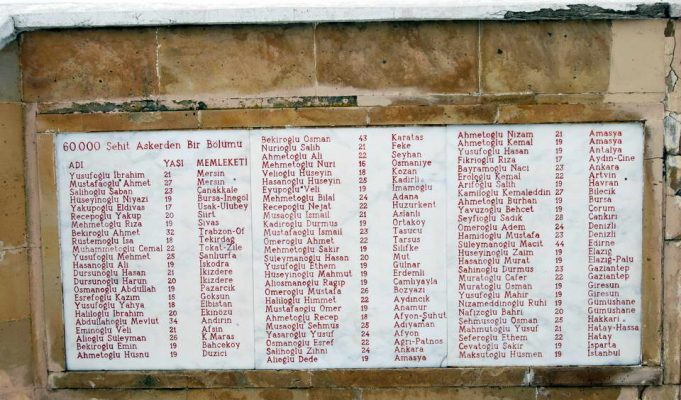 60.000 Sehit Askerden Bir Bölümü
ADI YASI MEMLEKETI
Yusufoglu Ibrahim 21 Mersin
Mustafaoglu Ahmet 27 Mersin
Salihoglu Saban 23 Canakkale
Hüseyinoglu Niyazi 19 Bursa-Inegol
Yakupoglu Eldivas 17 Usak-Ulubey
Recepoglu Yakup 20 Siirt
Mehmetoglu Riza 19 Sivas
Bekiroglu Ahmet 32 Trabzon-Of
Rüstemoglu Isa 18 Tekirdag
Muhammetoglu Cemal 22 Tokat-Zile
Yusufoglu Mehmet 25 Sanliurfa
Hasanoglu Ali 19 Iskodra
Dursunoglu Hasan 21 Ikizdere
Dursunoglu Harun 20 Ikizdere
Osmanoglu Abdullah 19 Pazarcik
Esrefoglu Kazim 15 Goksun
Yusufoglu Yahya 18 Elbistan
Haliloglu Ibrahim 20 Ekinözu
Abdullahoglu Mevlut 34 Andirin
Eminoglu Veli 21 Afsin
Alioglu Süleyman 26 K.Maras
Bekiroglu Emin 19 Bahcekoy
Ahmetoglu Husnu 19 Duzici
Bekiroglu Osman 43 Karatas
Nurioglu Salih 21 Feke
Ahmetoglu Ali 22 Seyhan
Mehmetoglu Nuri 16 Osmaniye
Velioglu Hüseyin 18 Kozan
Hasanoglu Hüseyin 28 Kadirli
Eyupoglu Veli 19 Imamoglu
Mehmetoglu Bilal 24 Adana
Recepoglu Nejat 22 Huzurkent
Musaoglu Ismail 21 Aslanli
Kadiroglu Durmus 19 Ortaköy
Mustafaoglu Ismail 23 Tasucu
Omeroglu Ahmet 22 Tarsus
Mehmetoglu Sakir 19 Silifke
Süleymanoglu Hasan 20 Mut
Yusufoglu Ethem 19 Gülnar
Hüseyinoglu Mahmut 19 Erdemli
Aliosmanoglu Ragip 19 Camliyayla
Omeroglu Mustafa 26 Bozyazi
Haliloglu Himmet 22 Aydincik
Mustafaoglu Omer 19 Anamur
Ahmetoglu Recep 18 Afyon-Suhut
Musaoglu Sehmus 28 Adiyaman
Yasaroglu Yusuf 24 Afyon
Osmanoglu Esref 22 Agri-Patnos
Salihoglu Zihni 24 Ankara
Alieglu Dede 19 Amasya
Ahmetoglu Nizam 21 Amasya
Ahmetoglu Kemal 19 Amasya
Yusufoglu Hasan 19 Antalya
Fikrioglu Riza 17 Aydin-Cine
Bayramoglu Naci 23 Ankara
Erologlu Kemal 22 Artvin
Arifoglu Salih 19 Havran
Kamiloglu Kemaleddin 27 Bilecik
Ahmetoglu Burhan 19 Bursa
Yavuzoglu Behcet 19 Çorum
Seyfioglu Sadik 28 Cankiri
Omeroglu Adem 24 Denizli
Hamidoglu Mustafa 23 Denizli
Süleymanoglu Macit 44 Edirne
Hüseyinoglu Zaim 19 Elazig
Hasanoglu Murat 19 Elazig-Palu
Sahinoglu Durmus 23 Gaziantep
Muratoglu Cafer 22 Gaziantep
Muratoglu Osman 19 Giresun
Yusufoglu Mahir 19 Giresun
Nizameddinoglu Ruhi 19 Gümüshane
Nafizoglu Bahri 20 Gümüshane
Sehmusoglu Osman 25 Hakkari
Mahmutoglu Yusuf 21 Hatay-Hassa
Seferoglu Ethem 22 Hatay
Cevatoglu Sakir 19 Isparta
Maksutoglu Hüsmen 19 Istanbul